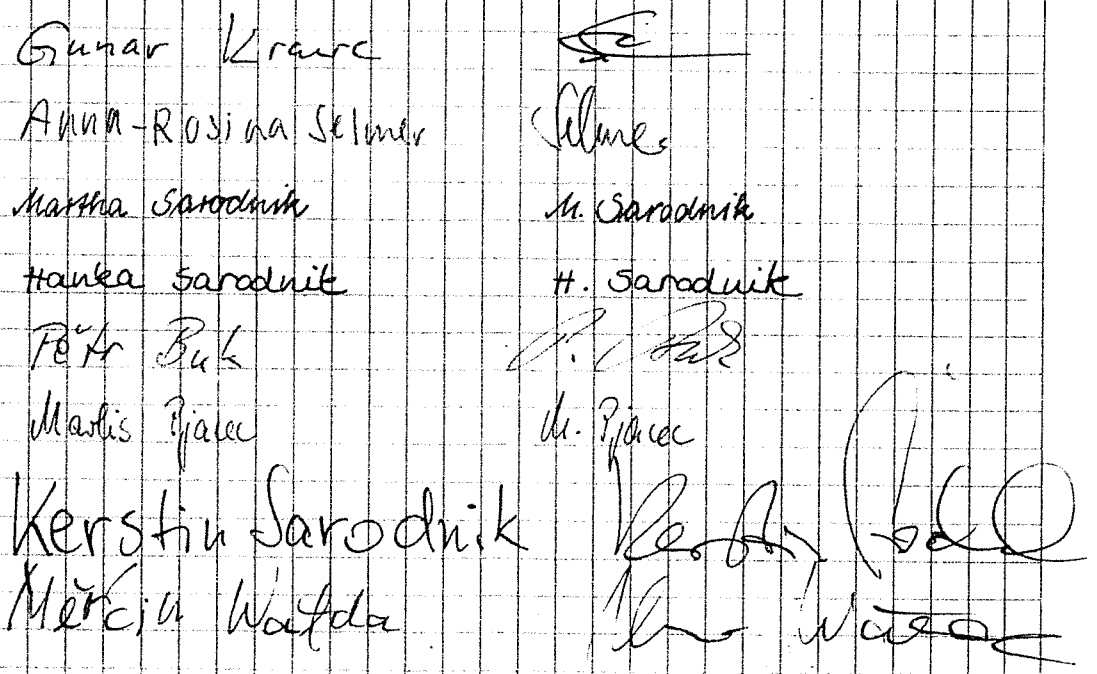 Gunar Krawc
Anna-Rosina Selmer Selmer
Martha Sarodnik M. Sarodnik
Hanka Sarodnik H. Sarodnik
Pětr Buk P. Buk
Marlis Pjarec M. Pjarec
Kerstin Sarodnik Kerstin
Měrćin Wałda